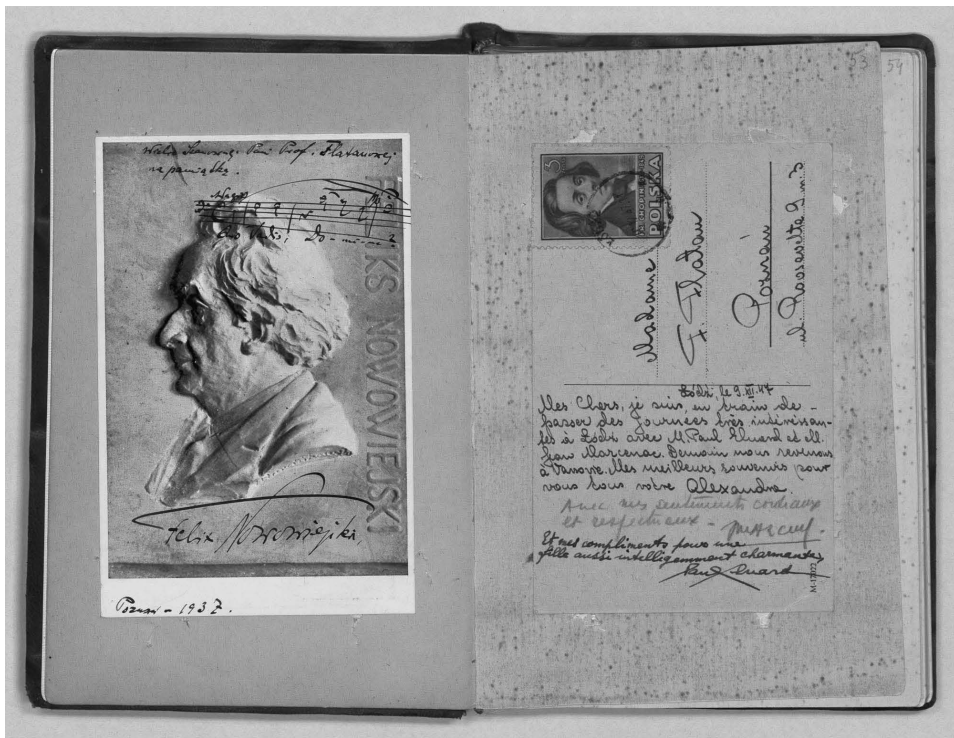 Wielce Szanownej Pani Prof. Flatauowej
na pamiątkę.
Quo Vadis, Do-mi-ne?
FELIKS NOWOWIEJSKI
Felix Nowowiejski
Poznań - 1937.
53
54
3
CHOPIN
POLSKA
Madame
F. Flatau
Poznań
ul. Roosevelta 9 m 3
Łódź, le 9.XII.47
Mes Chers, je suis en train de
passer des journées très intéressan-
tes à Łódź avec M. Paul Eluard et M.
Jean Marcenac. Demain nous revenons
à Varsovie. Mes meilleurs souvenirs pour
vous tous votre Alexandra.
Avec mes sentiments cordiaux
et respectueux -
Et mes compliments pour une
fille aussi intelligemment charmante,
Paul Eluard
M-12022